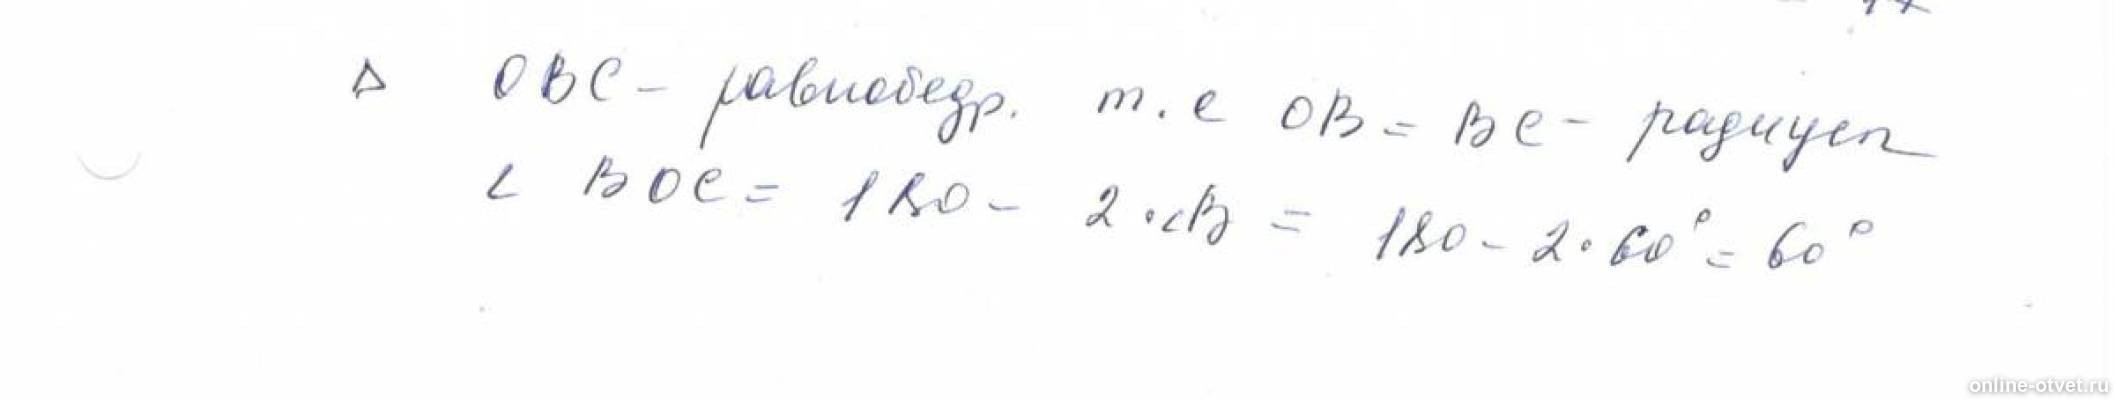 Δ OBC - равнобедр. т.е OB = BC - радиусы
∠ BOC = 180 - 2·∠B = 180 - 2·60° = 60°
online-otvet.ru